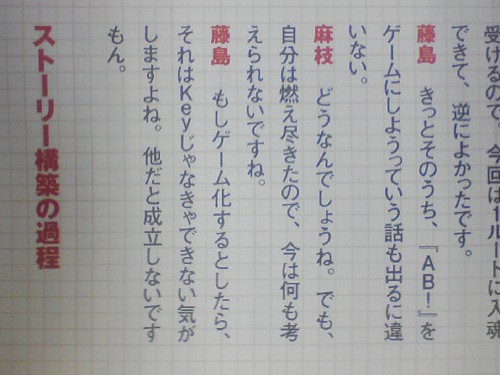 受けるので、今回は１ルートに入魂
できて、逆によかったです。
藤島　きっとそのうち、『AB！』を
ゲームにしようっていう話も出るに違
いない。
麻枝　どうなんでしょうね。でも、
自分は燃え尽きたので、今は何も考
えられないですね。
藤島　もしゲーム化するとしたら、
それはKeyじゃなきゃできない気が
しますよね。他だと成立しないです
もん。
ストーリー構築の過程